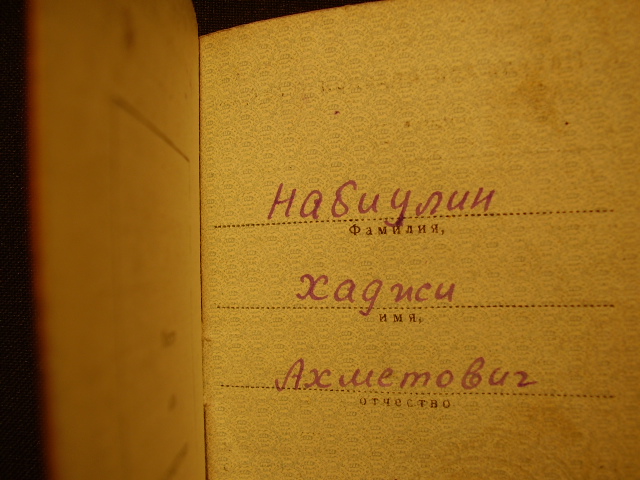 Набиулин
Фамилия,
Хаджи
имя,
Ахметович
отчество